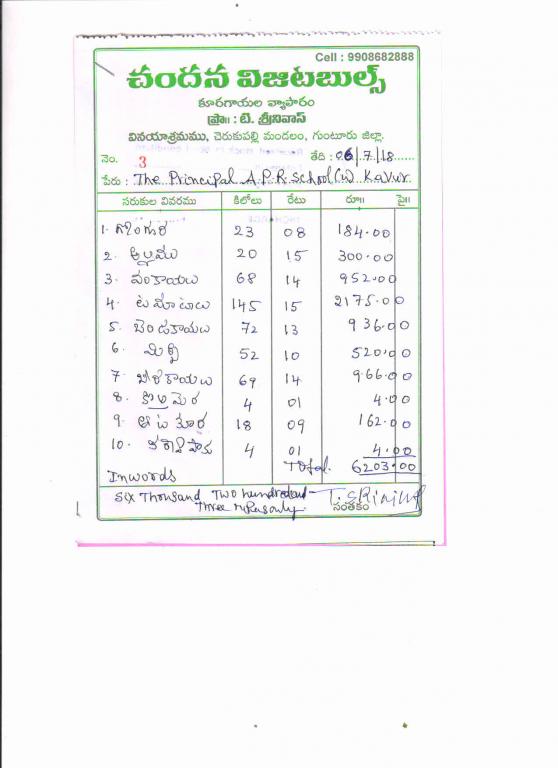 Cell : 9908682888
చందన విజిటబుల్స్
కూరగాయల వ్యాపారం
ప్రొ॥ : టి. శ్రీనివాస్
వినయాశ్రమము, చెరుకుపల్లి మండలం, గుంటూరు జిల్లా.
నెం. 3 తేది : 06/7/18
పేరు : The Principal A.P.R School (w) Kavur
సరుకుల వివరము కిలోలు రేటు రూ॥ పై॥
1. గోంగూర 23 08 184.00
2. అల్లము 20 15 300.00
3. వంకాయలు 68 14 952.00
4. టమోటాలు 145 15 2175.00
5. బెండకాయలు 72 13 936.00
6. మిర్చి 52 10 520.00
7. బీరకాయలు 69 14 966.00
8. కొ 4 01 4.00
9. 18 09 162.00
10. 4 01 4.00
Total. 6203.00
Inwords
Six Thousand Two hundred and
Three only.
సంతకం